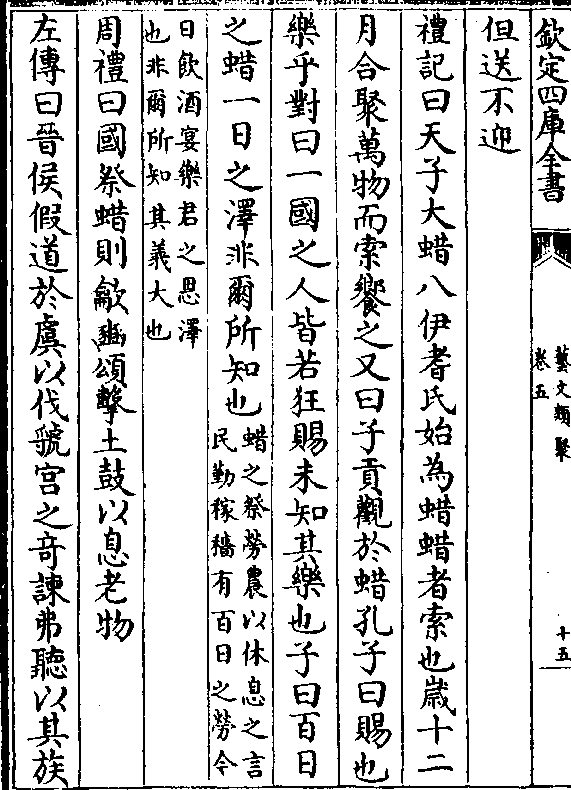 欽定四庫全書
藝文類聚
卷五
十五
但送不迎
禮記曰天子大蜡八伊耆氏始為蜡蜡者索也歲十二
月合聚萬物而索饗之又曰子貢觀於蜡孔子曰賜也
樂乎對曰一國之人皆若狂賜未知其樂也子曰百日
之蜡一日之澤非爾所知也
蜡之祭勞農以休息之言
民勤稼穡有百日之勞今
日飲酒宴樂君之恩澤
也非爾所知其義大也
周禮曰國祭蜡則龡豳頌擊土鼓以息老物
左傳曰晉侯假道於虞以伐虢宮之奇諫弗聽以其族